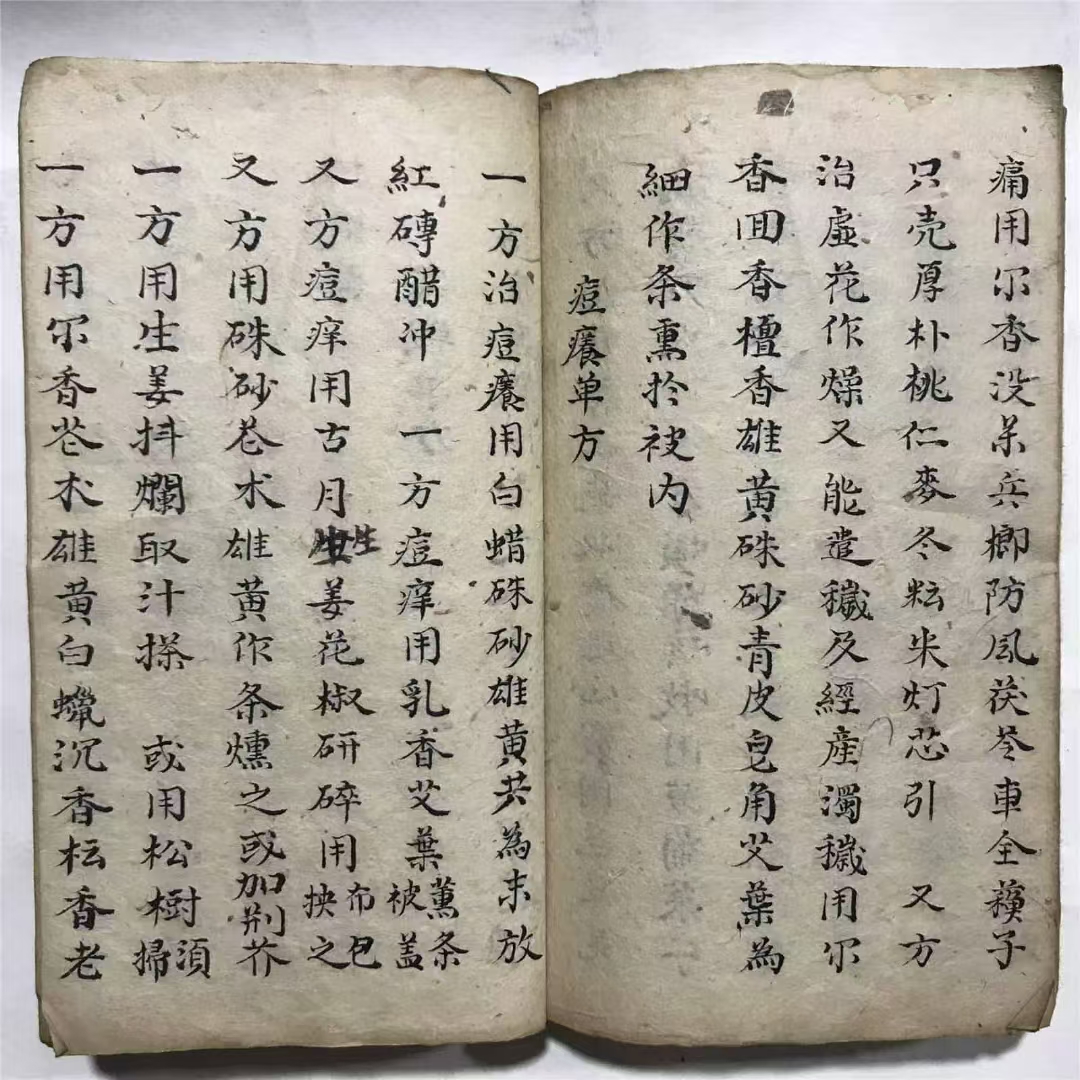 痛用尔香没药兵榔防风茯苓車全蔆子
只壳厚朴桃仁麥冬粘米灯芯引　又方
治虚花作燥又能遣穢及經産濁穢用尔
香囬香檀香雄黄硃砂青皮皂角艾葉為
細作条熏於被内
痘癢单方
一方治痘癢用白蜡硃砂雄黄共為末放
紅磚醋冲　一方痘痒用乳香艾葉薰条被盖
又方痘痒用古月生姜花椒研碎用布包抰之
又方用硃砂苍术雄黄作条燻之或加荆芥
一方用生姜抖爛取汁搽　或用松樹須掃
一方用尔香苍术雄黄白蠟沉香枟香老